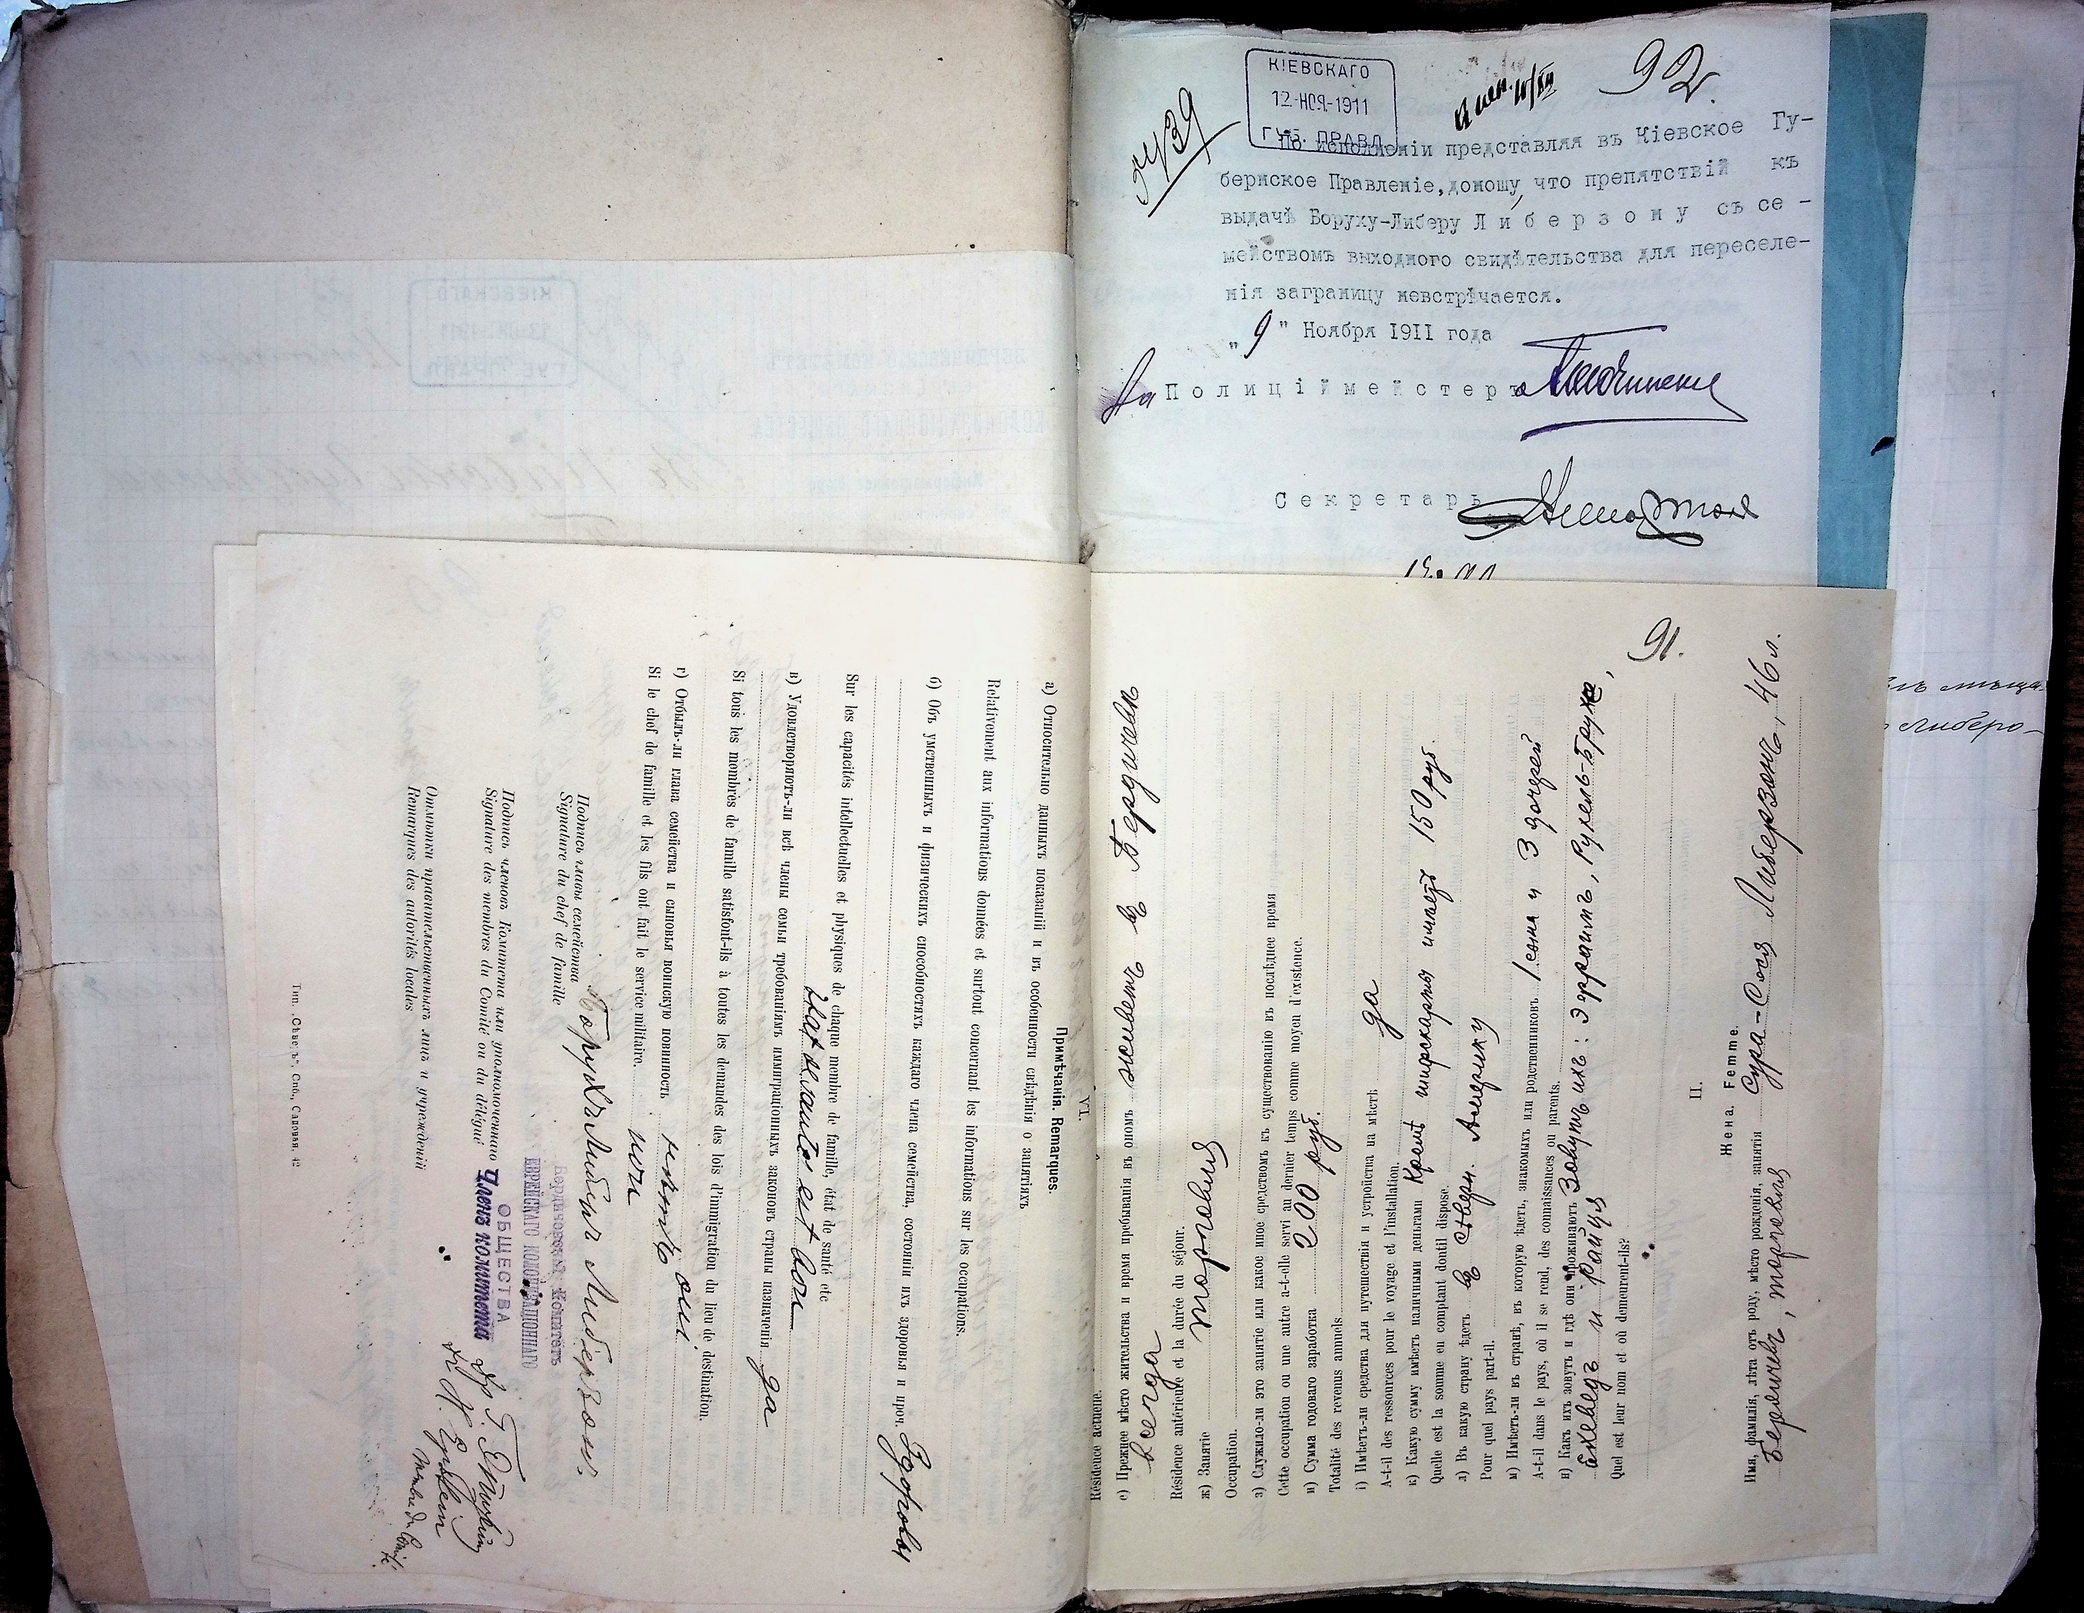 92
КІЕВСКАГО
12-НОЯ-1911
ГУБ. ПРАВЛ.
По исполненіи представляя въ Кіевское Гу-
бернское Правленіе, доношу, что препятствій къ
выдачѣ Боруху-Либеру Либерзону съ се-
мействомъ выходного свидѣтельства для переселе-
нія заграницу невстрѣчается.
„9" Ноября 1911 года
За Полиціймейстеръ
Секретарь
91.
Résidence actuelle.
е) Прежнее мѣсто жительства и время пребыванія въ ономъ живетъ въ Бердичевѣ
всегда
Résidence antérieure et la durée du séjour.
ж) Занятіе торговля
Occupation.
з) Служило-ли это занятіе или какое иное средствомъ къ существованію въ послѣднее время
Cette occupation ou une autre a-t-elle servi au dernier temps comme moyen d'existence.
и) Сумма годоваго заработка 200 руб.
Totalité des revenus annuels.
і) Имѣетъ-ли средства для путешествія и устройства на мѣстѣ да
A-t-il des ressources pour le voyage et l'installation.
к) Какую сумму имѣетъ наличными деньгами Кромѣ шифскарты имѣетъ 150 руб.
Quelle est la somme en comptant dontil dispose.
л) Въ какую страну ѣдетъ въ Сѣверн. Америку
Pour quel pays part-il.
м) Имѣетъ-ли въ странѣ, въ которую ѣдетъ, знакомыхъ или родственниковъ 1 сына и 3 дочерей
A-t-il dans le pays, où il se rend, des connaissances ou parents.
н) Какъ ихъ зовутъ и гдѣ они проживаютъ Зовутъ ихъ: Эфраимъ, Рухель-Бруха,
и Райця
Quel est leur nom et où demeurent-ils?
II.
Жена. Femme.
Имя, фамилія, лѣта отъ роду, мѣсто рожденія, занятія Сура-Сося Либерзонъ, 46 л.
Бердичевъ, торговля
VI.
Примѣчанія. Remarques.
а) Относительно данныхъ показаній и въ особенности свѣдѣнія о занятіяхъ
Relativement aux informations données et surtout concernant les informations sur les occupations.
б) Объ умственныхъ и физическихъ способностяхъ каждаго члена семейства, состояніи ихъ здоровья и проч. Здоровы
Sur les capacités intellectuelles et physiques de chaque membre de famille, état de santé etc
L'état de santé est bon
в) Удовлетворяютъ-ли всѣ члены семьи требованіямъ иммиграціонныхъ законовъ страны назначенія да
Si tous les membres de famille satisfont-ils à toutes les demandes des lois d'immigration du lieu de destination. oui
г) Отбылъ-ли глава семейства и сыновья воинскую повинность нѣтъ
Si le chef de famille et les fils ont fait le service militaire. non
Подпись главы семейства
Signature du chef de famille
Борухъ Либеръ Либерзонъ.
Бердичевскій Комитетъ
ЕВРЕЙСКАГО КОЛОНИЗАЦІОННАГО
ОБЩЕСТВА
Члены комитета
Подпись членовъ Комитета или уполномоченнаго
Signature des membres du Comité ou du délégué
Отмѣтки правительственныхъ лицъ и учрежденій
Remarques des autorités locales
Тип. „Сѣверъ", Спб., Садовая, 42